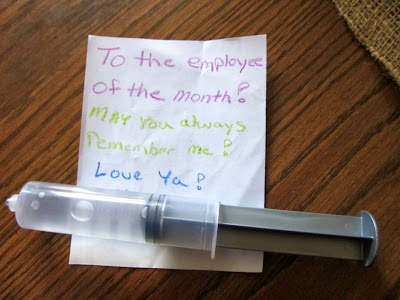 To the employee
of the month!
MAY You always
remember me!
Love Ya!